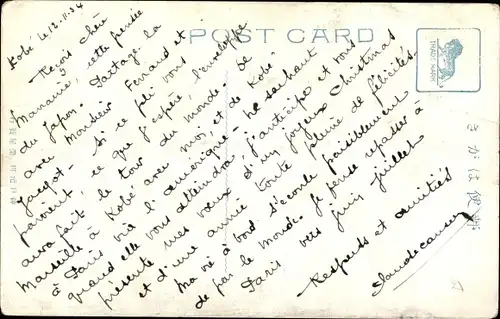 POST CARD
TRADE MARK
Kobé le 12.11.34
Reçois chère
Mamanie, cette pensée
du Japon. Partage la
avec Monsieur Fernand et
Jacquot. Si ce pli vous
parvient, ce que j'espère, l'enveloppe
aura fait le tour du monde. De
Marseille à Kobé avec moi, et de Kobé
à Paris via l'Amérique. Ne sachant
quand elle vous atteindra j'anticipe et vous
présente mes vœux d'un joyeux Christmas
et d'une année toute pleine de félicités.
Ma vie à bord s'écoule paisiblement
de par le monde. Je pense repasser à
Paris vers juin juillet
Respects et amitiés
きがは便郵